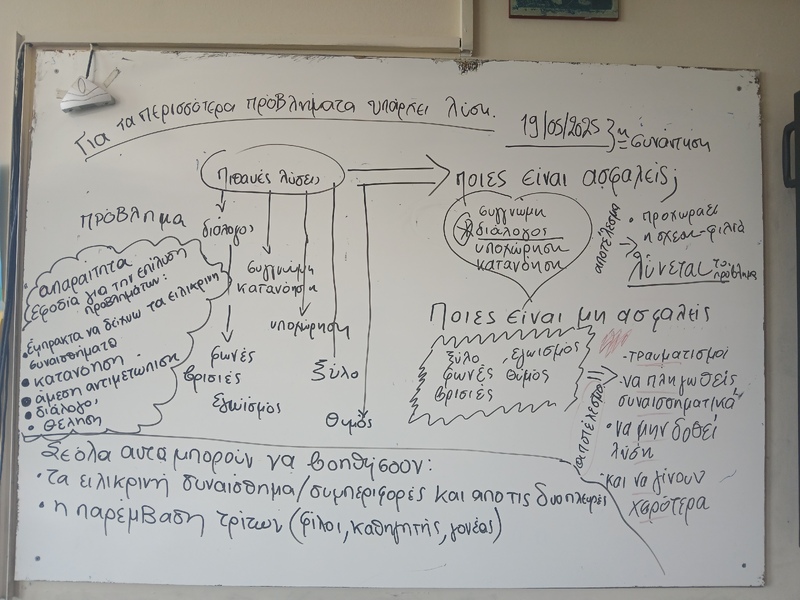 Για τα περισσότερα προβλήματα υπάρχει λύση.
19/05/2025
Συνάντηση
Πιθανές λύσεις
ποιες είναι ασφαλείς;
πρόβλημα
διάλογος
συγγνώμη
κατανόηση
υποχώρηση
φωνές
βρισιές
εγωισμός
ξύλο
θυμός
συγγνώμη
διάλογος
υποχώρηση
κατανόηση
αποτέλεσμα
• προχωράει
η σχεση-φιλιά
λύνεται το πρόβλημα
απαραίτητα
εφόδια για την επίλυση
προβλημάτων:
• έμπρακτα να δείχνω τα ειλικρινη
συναισθήματα
• κατανόηση
• άμεση αντιμετώπιση
• διάλογο,
• θέληση
Ποιες είναι μη ασφαλείς
ξύλο , εγωισμός
φωνές θυμός
βρισιές
αποτέλεσμα
-τραυματισμοί
-να πληγωθείς
συναισθηματικά
• να μην δοθεί
λύση
και να γίνουν
χειρότερα
Σε όλα αυτα μπορούν να βοηθήσουν:
• τα ειλικρινή συναίσθημα/συμπεριφορές και απο τις δυο πλευρές
• η παρέμβαση τρίτων (φίλοι, καθηγητής, γονέας)